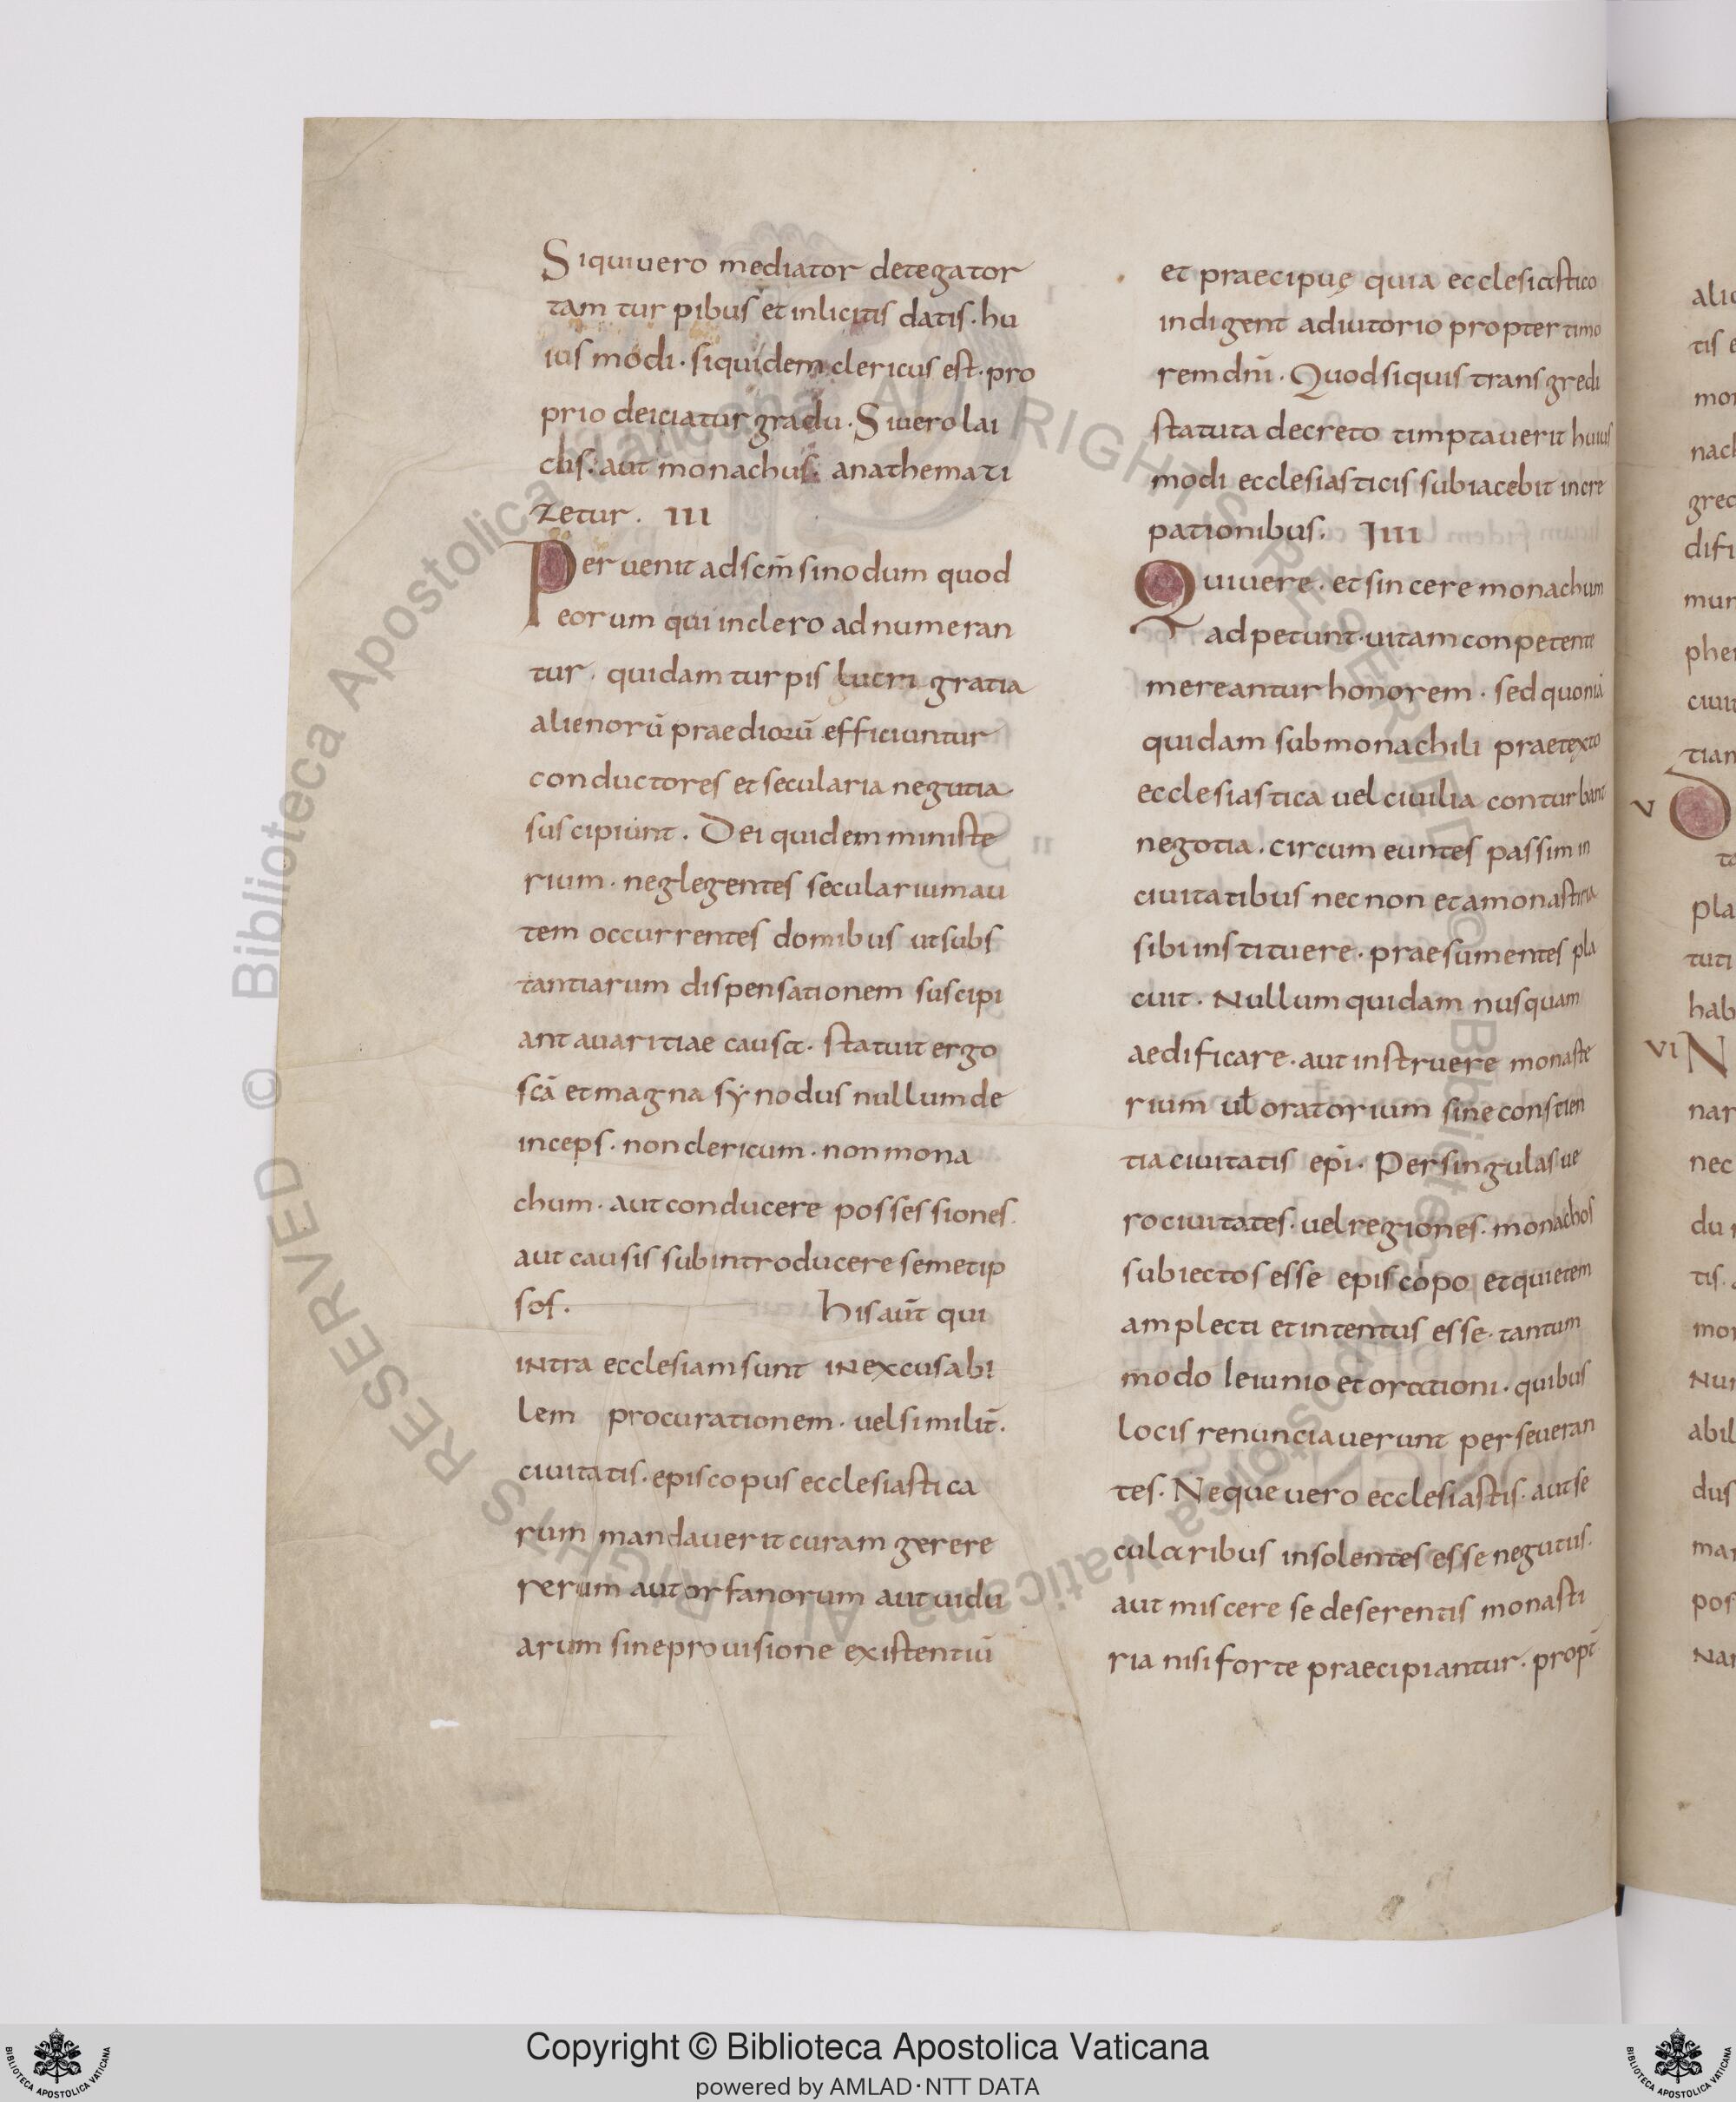 Siquiuero mediator detegator
tam turpibus et inlicitis datis. hu
ius modi. siquidem clericus est. pro
prio deiciatur gradu. Siuero lai
cus. aut monachus. anathemati
zetur. III
Peruenit ad scm̄ sinodum quod
eorum qui inclero adnumeran
tur. quidam turpis lucri gratia
alienorū praediorū efficiuntur
conductores et secularia negutia
suscipiunt. Dei quidem ministe
rium. neglegentes secularium au
tem occurrentes domibus ut subs
tantiarum dispensationem suscipi
ant auaritiae causa. statuit ergo
scā et magna synodus nullum de
inceps. non clericum. non mona
chum. aut conducere possessiones.
aut causis subintroducere semetip
sos. hisaut̄ qui
intra ecclesiam sunt inexcusabi
lem procurationem. uel similit̄.
ciuitatis. episcopus ecclesiastica
rum mandauerit curam gerere
rerum aut orfanorum aut uidu
arum sine prouisione existentiū
et praecipuę quia ecclesiastico
indigent adiutorio propter timo
rem dnī. Quod siquis transgredi
statuta decreto timptauerit huius
modi ecclesiasticis subiacebit incre
pationibus. IIII
Quiuere. et sincere monachum
adpetunt. uitam conpetente
mereantur honorem. sed quoniā
quidam sub monachili praetexto
ecclesiastica uel ciuilia conturbant
negotia. circumeuntes passim in
ciuitatibus nec non et amonastiria
sibi instituere. praesumentes pla
cuit. Nullum quidam nusquam
aedificare. aut instruere monaste
rium ul oratorium sine conscien
tia ciuitatis epī. Per singulas ue
ro ciuitates. uel regiones. monachos
subiectos esse episcopo et quietem
amplecti et intentus esse. tantum
modo Ieiunio et orationi. quibus
locis renunciauerunt perseueran
tes. Neque uero ecclesiastis. aut se
cularibus insolentes esse negutus.
aut miscere se deserentis monasti
ria nisi forte praecipiantur. propt̄
V
VI
Copyright © Biblioteca Apostolica Vaticana
powered by AMLAD·NTT DATA